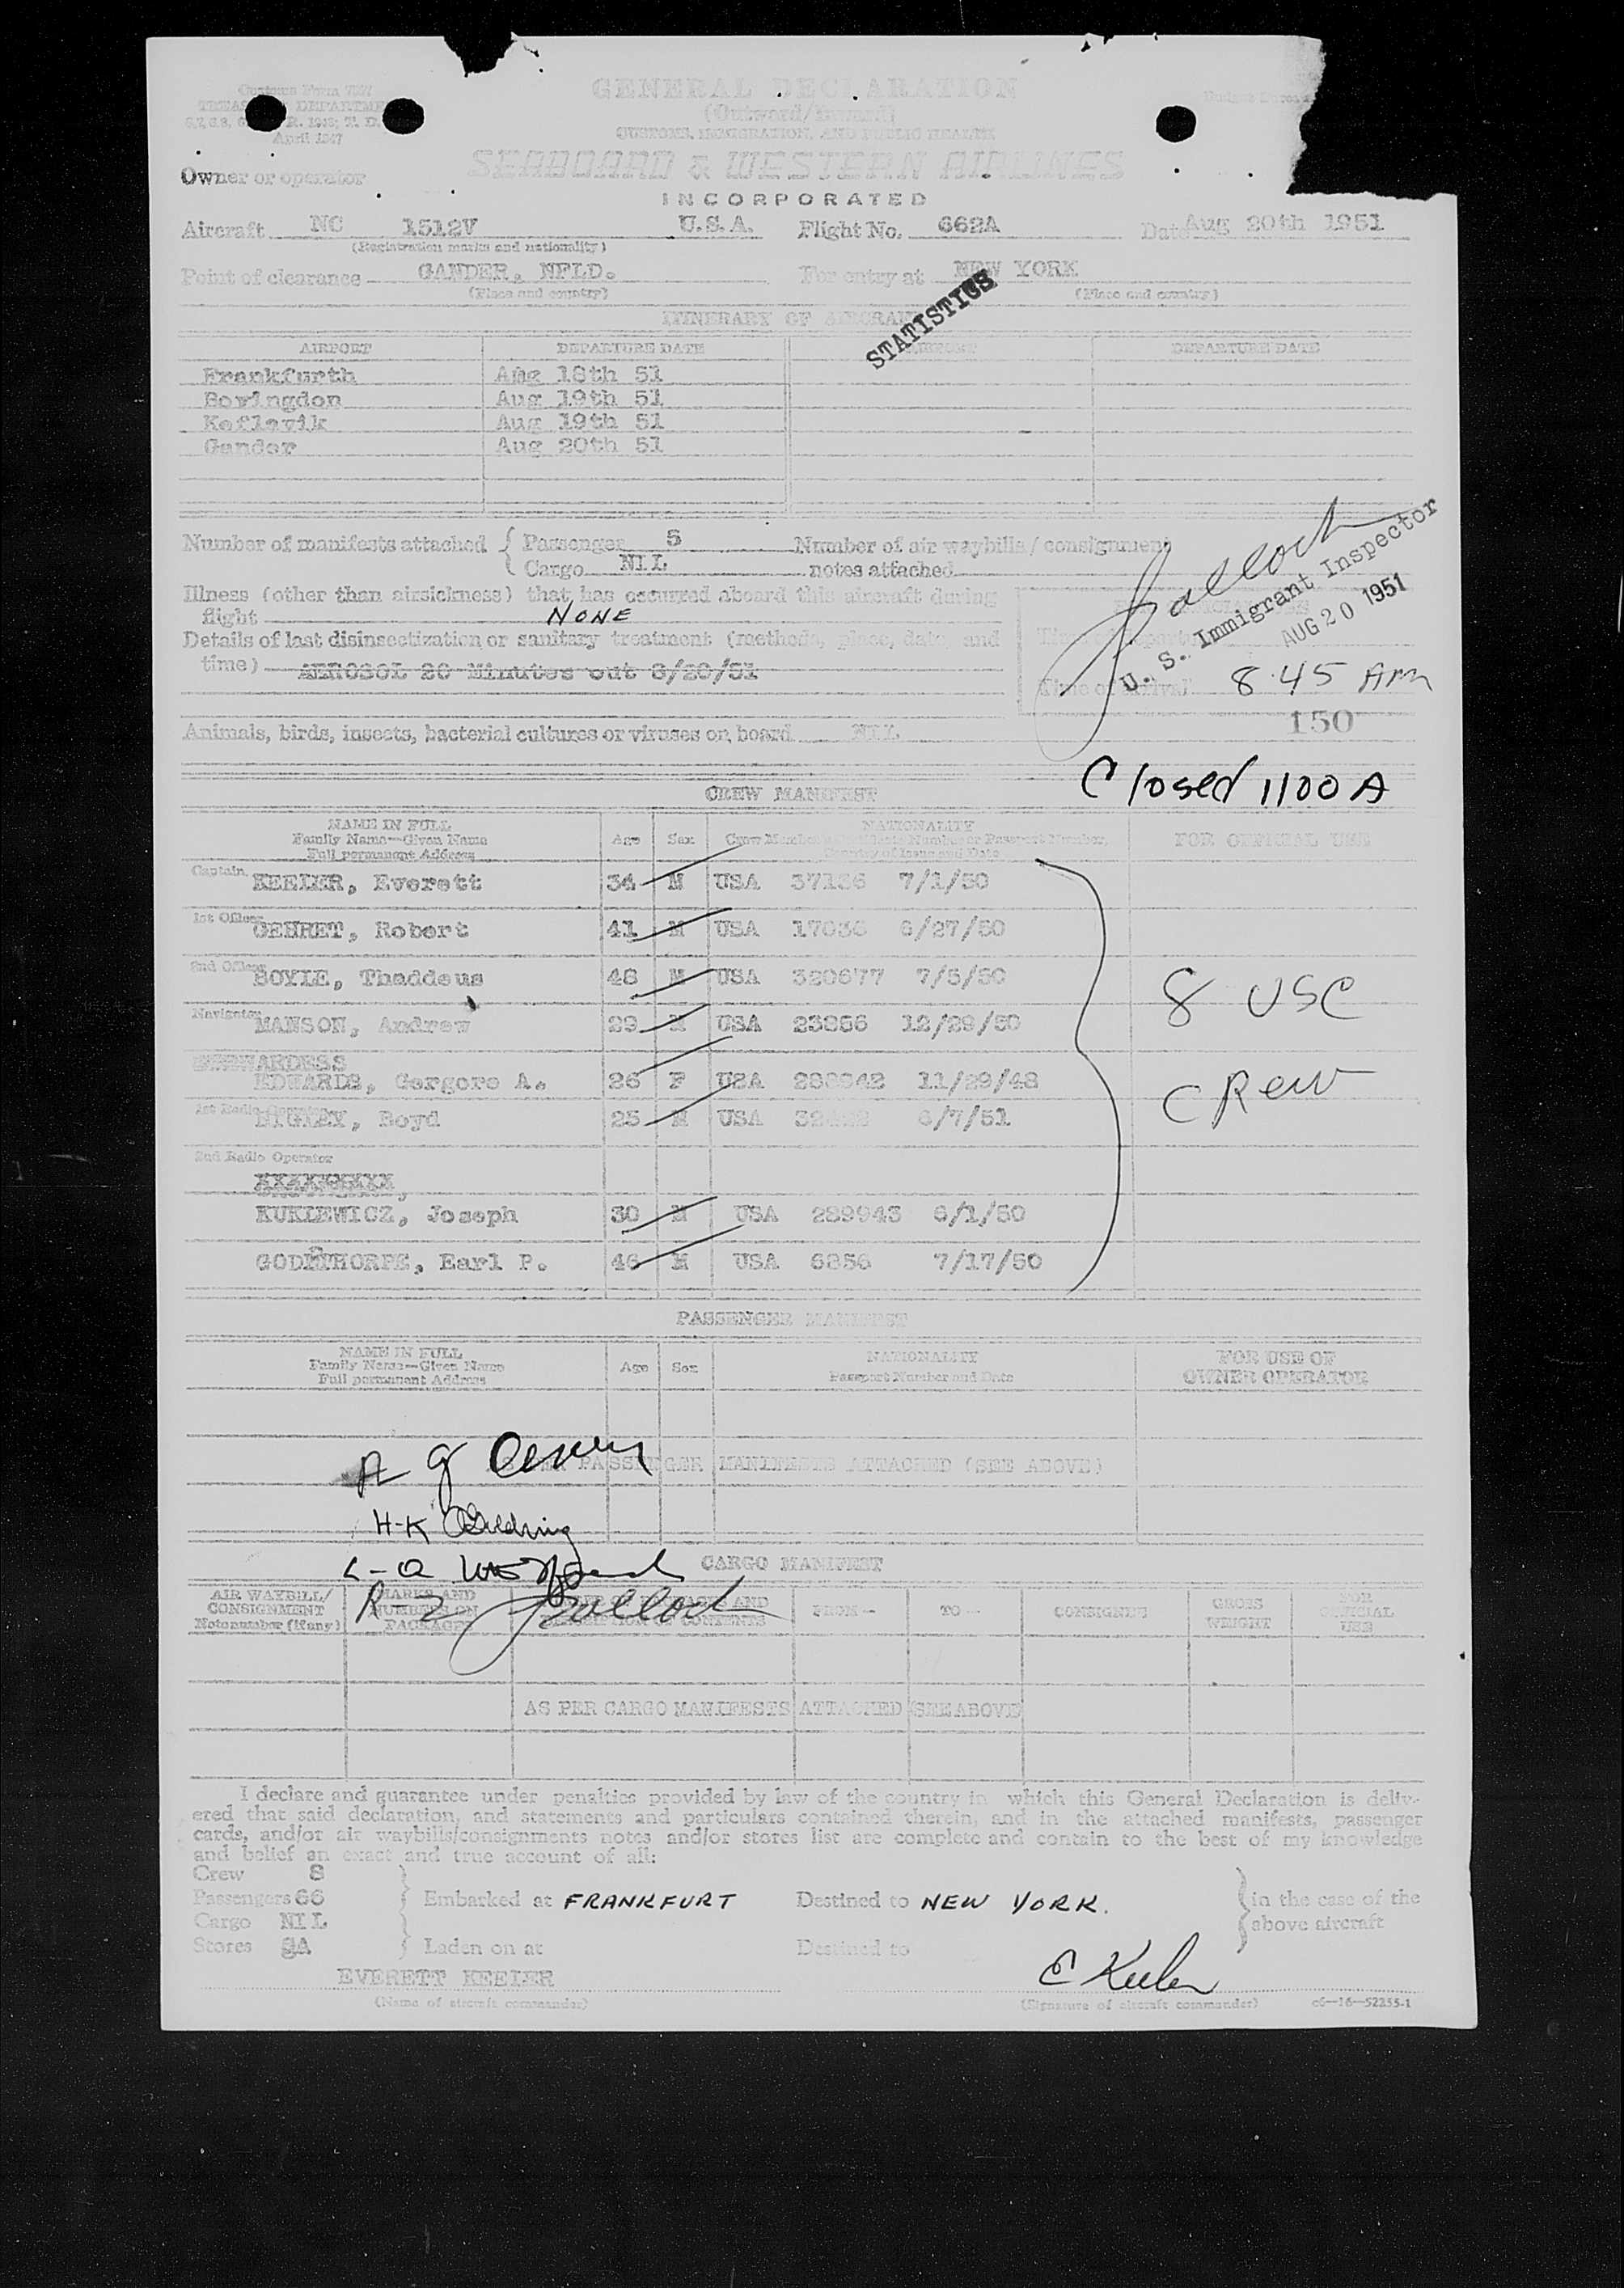 Customs Form 7507
GENERAL DECLARATION
(Outward/Inward)
April 1947
CUSTOMS, IMMIGRATION, AND PUBLIC HEALTH
SEABOARD & WESTERN AIRLINES
Owner or operator
INCORPORATED
Aircraft NC 1512V U.S.A. Flight No. 662A Date Aug 20th 1951
(Registration marks and nationality)
Point of clearance GANDER, NFLD. For entry at NEW YORK
(Place and country) (Place and country)
STATISTICS
ITINERARY OF AIRCRAFT
AIRPORT DEPARTURE DATE DEPARTURE DATE
Frankfurth Aug 18th 51
Bovingdon Aug 19th 51
Keflavik Aug 19th 51
Gander Aug 20th 51
Number of manifests attached Passenger 5 Number of air waybills / consignment
Cargo NIL notes attached
Illness (other than airsickness) that has occurred aboard this aircraft during
flight NONE
Details of last disinsectization or sanitary treatment (methods, place, date, and
time) AEROSOL 20 Minutes out 8/20/51
U. S. Immigrant Inspector
AUG 20 1951
Time of arrival 8:45 Am
150
Animals, birds, insects, bacterial cultures or viruses on board NIL
Closed 1100 A
CREW MANIFEST
NAME IN FULL NATIONALITY
Family Name—Given Name Age Sex FOR OFFICIAL USE
Full permanent Address Country of Issue and Date
Captain KEELER, Everett 34 M USA 37136 7/1/50
1st Officer GEHRET, Robert 41 M USA 17036 6/27/50
2nd Officer BOYLE, Thaddeus 48 M USA 320677 7/5/50
8 USC
Navigator MANSON, Andrew 29 M USA 23856 12/29/50
EDWARDS, Gergore A. 26 F USA 11/29/48
CREW
BIGLEY, Boyd 25 M USA 6/7/51
2nd Radio Operator
XXXXXXXXX
KUKIEWICZ, Joseph 30 M USA 289943 6/1/50
Earl P. 46 M USA 6856 7/17/50
PASSENGER MANIFEST
NAME IN FULL NATIONALITY FOR USE OF
Family Name—Given Name Age Sex
Full permanent Address Passport Number and Date OWNER OPERATOR
AS PER PASSENGER MANIFESTS ATTACHED (SEE ABOVE)
H-K
CARGO MANIFEST
AIR WAYBILL/ MARKS AND GROSS FOR
CONSIGNMENT NUMBERS ON FROM— TO— CONSIGNEE OFFICIAL
Note number (if any) PACKAGES DESCRIPTION OF CONTENTS WEIGHT USE
AS PER CARGO MANIFESTS ATTACHED (SEE ABOVE
I declare and guarantee under penalties provided by law of the country in which this General Declaration is deliv-
ered that said declaration, and statements and particulars contained therein, and in the attached manifests, passenger
cards, and/or air waybills/consignments notes and/or stores list are complete and contain to the best of my knowledge
and belief an exact and true account of all:
Crew 8
Passengers 66 Embarked at FRANKFURT Destined to NEW YORK. in the case of the
Cargo NIL above aircraft
Stores Laden on at Destined to
EVERETT KEELER E Keeler
(Name of aircraft commander) (Signature of aircraft commander) c6—16—52255-1